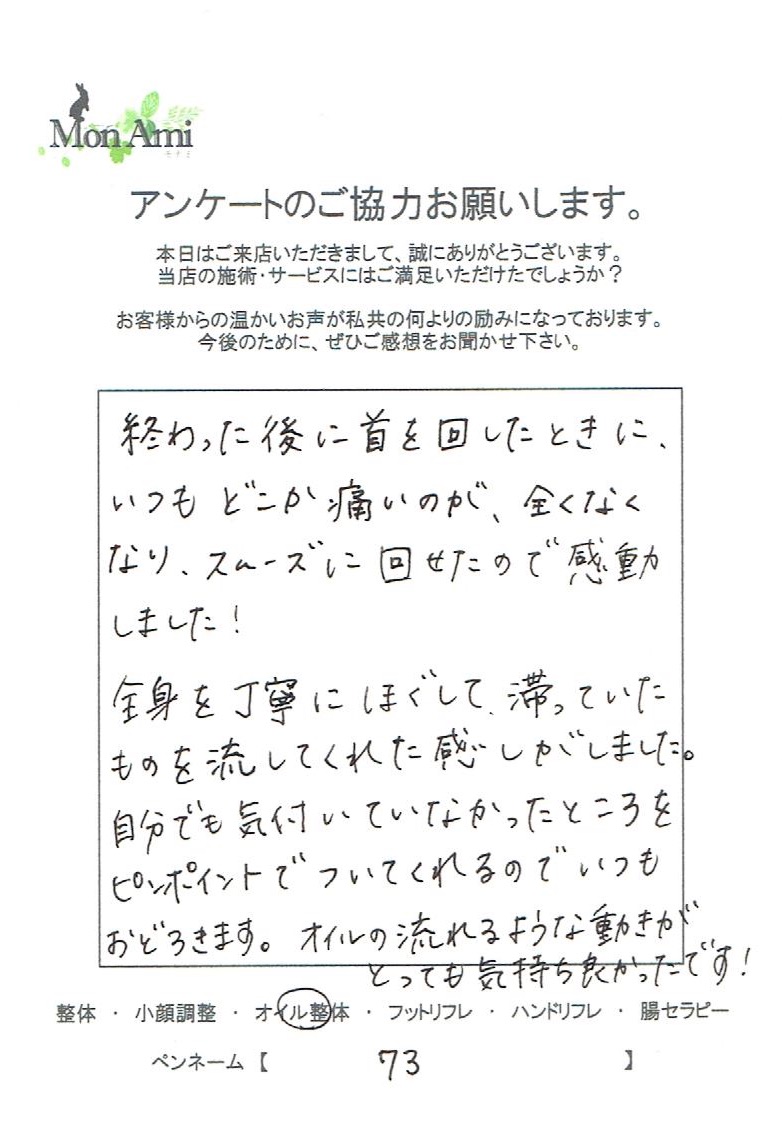 Mon Ami
モナミ
アンケートのご協力お願いします。
本日はご来店いただきまして、誠にありがとうございます。
当店の施術・サービスにはご満足いただけたでしょうか？
お客様からの温かいお声が私共の何よりの励みになっております。
今後のために、ぜひご感想をお聞かせ下さい。
終わった後に首を回したときに、
いつもどこか痛いのが、全くなく
なり、スムーズに回せたので感動
しました！
全身を丁寧にほぐして、滞っていた
ものを流してくれた感じがしました。
自分でも気付いていなかったところを
ピンポイントでついてくれるのでいつも
おどろきます。オイルの流れるような動きが
とっても気持ち良かったです！
整体 ・ 小顔調整 ・ オイル整体 ・ フットリフレ ・ ハンドリフレ ・ 腸セラピー
ペンネーム【 73 】